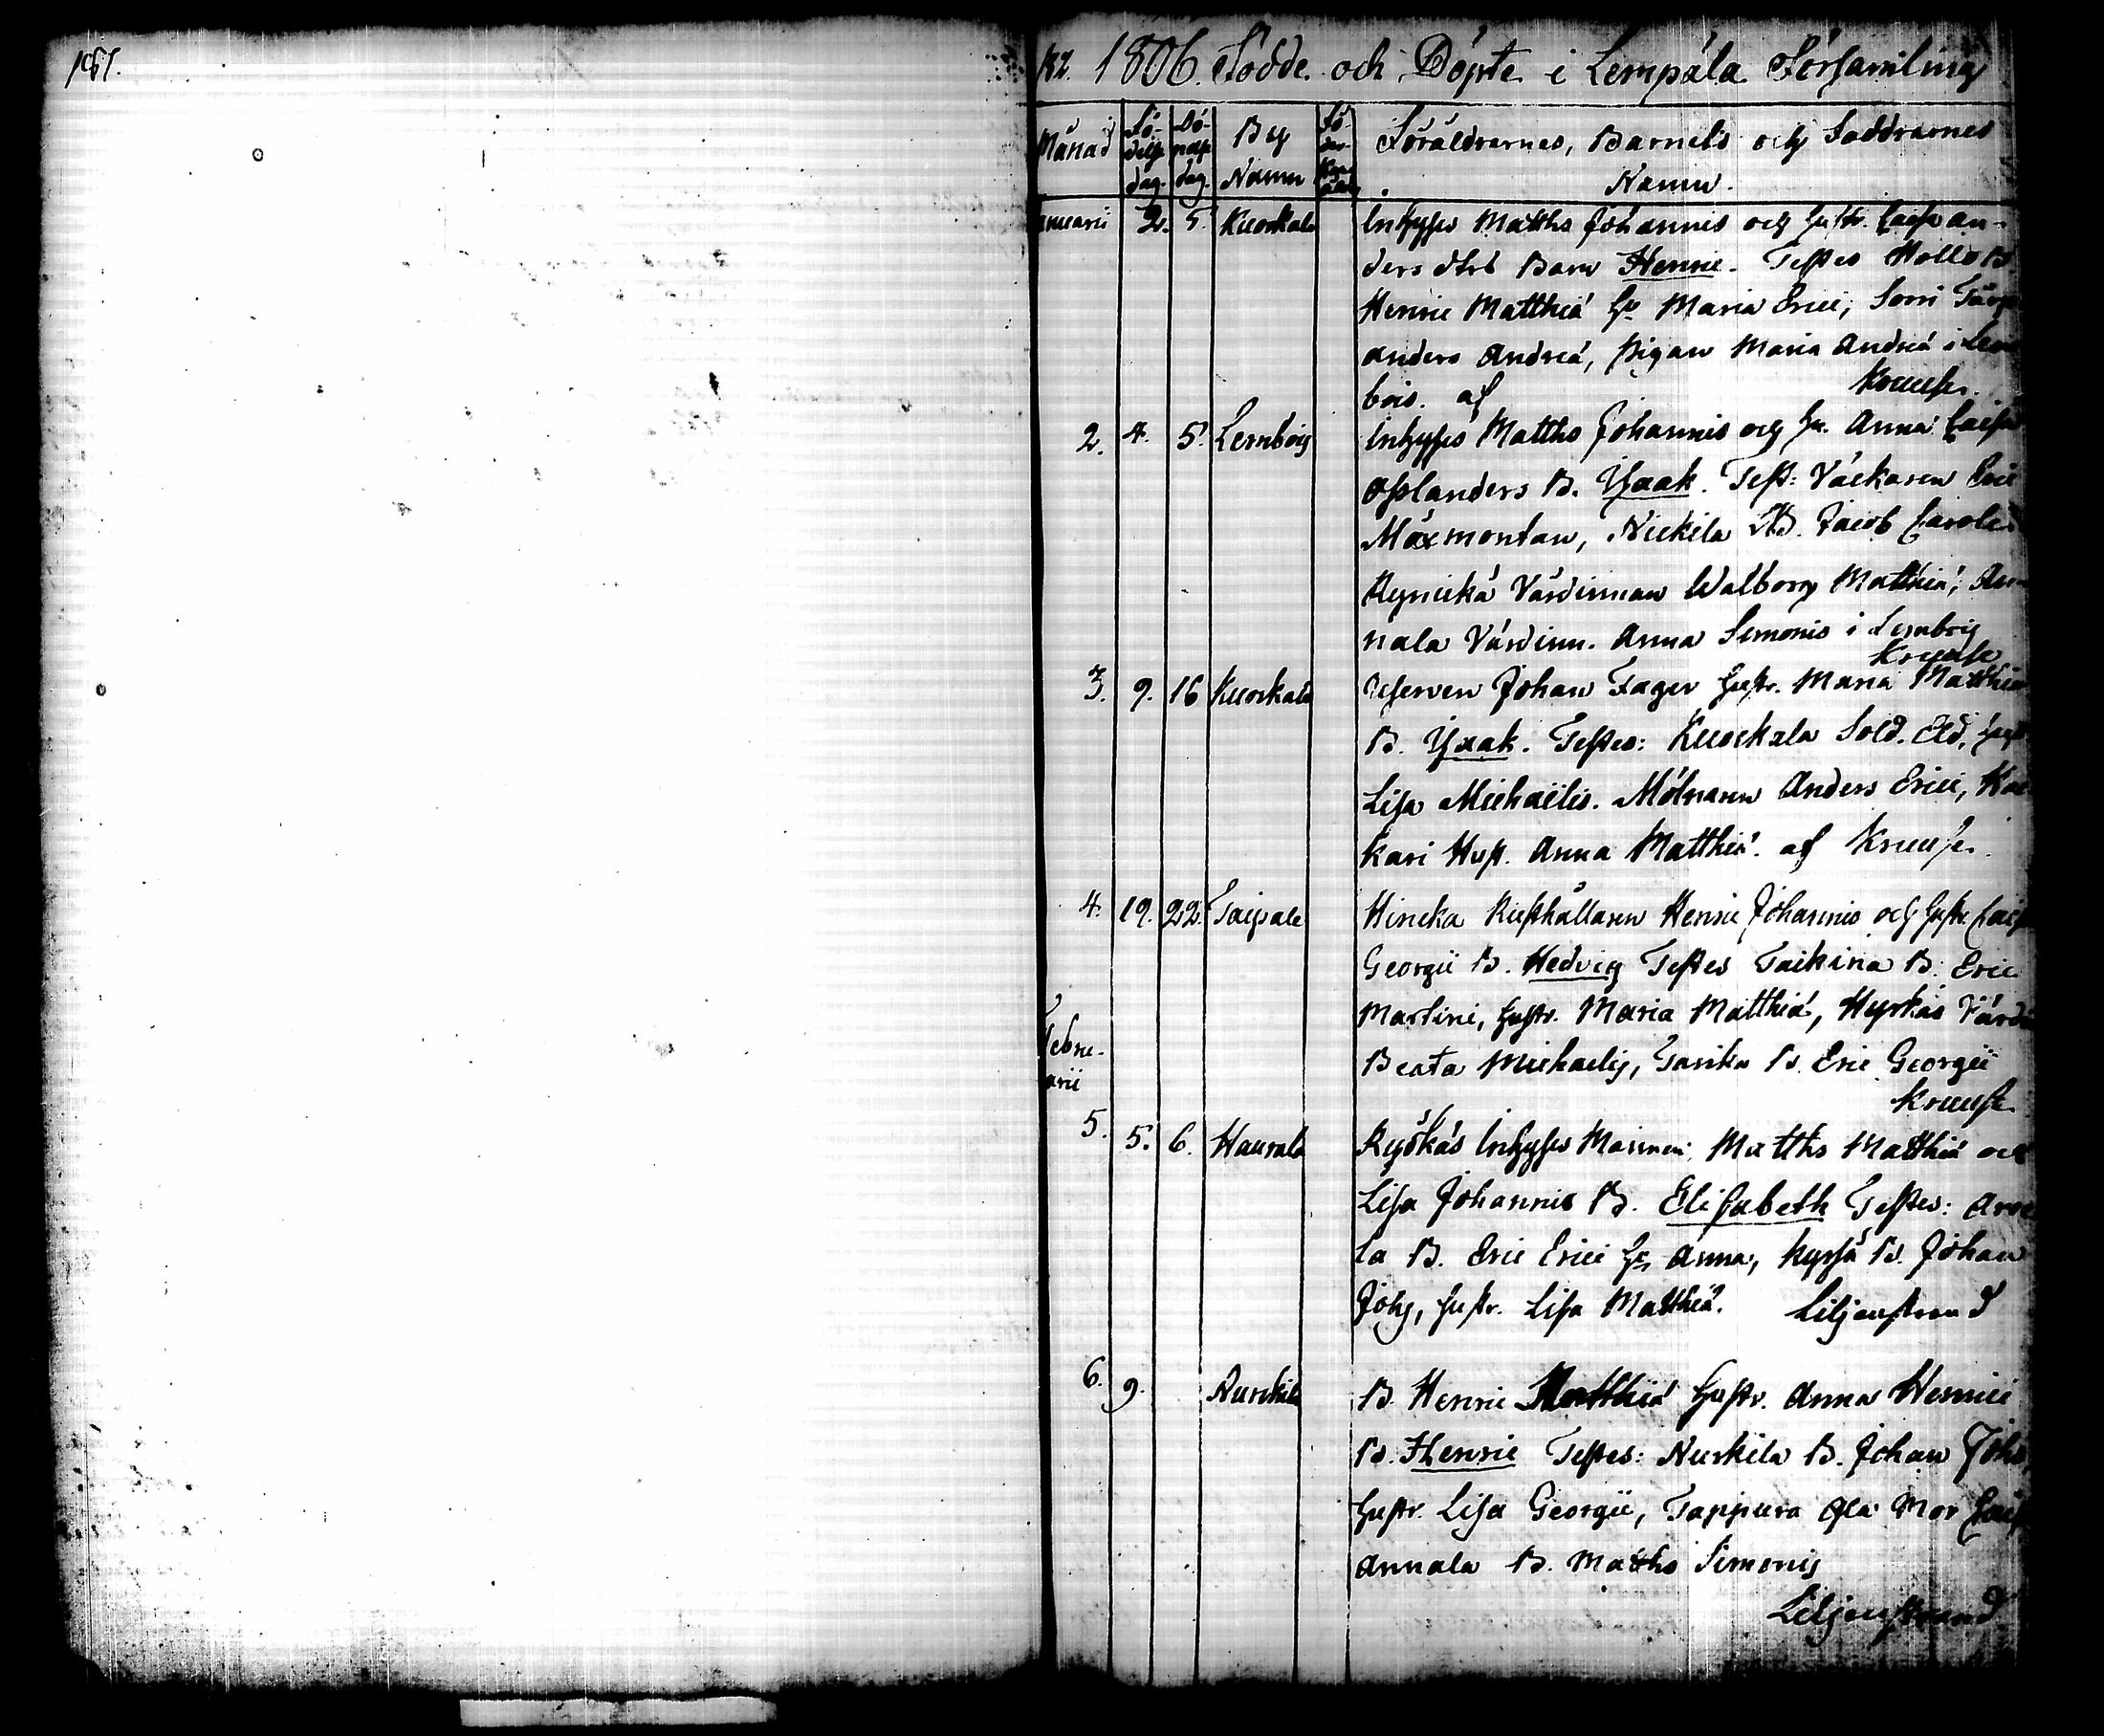 181.
182. 1806. Födde och Döpte i Lempåla Församling
Månad Fö-delse dag. Dö-pelse dag. By Namn Föräldrarnes, Barnets och Faddrarnes
Namn.
anuarii 2. 5. Kuockala Inhyses Matths Johannis och hustr. Caisa An-
ders dtrs Barn Henric. Testes Hollo B
Henric Matthiä hu Maria Erici, Sorri Torp
Anders Andreä, Pigan Maria Andreä i Lem
bois. af Kruuse.
2. 4. 5. Lembois Inhyses Matths Johannis och hu. Anna Caisa
Asplanders B. Ysaak. Test: Väckaren Eric
Maxmontan, Nickila B. Jacob Caroli
Hynickä Värdinnan Walborg Matthiä, An-
nala Värdinn. Anna Simonis i Lembois
Kruuse
3. 9. 16 Kuockala Reserven Johan Fager hustr. Maria Matthiä
B. Ysaak. Testes: Kuockala Sold. Eld, hust
Lisa Michaëlis. Mölnaren Anders Erici, Kac
kari Hust. Anna Matthiä. af Kruuse.
4. 19. 22. Taipale Hincka Rusthållaren Henric Johannis och hustr. Caisa
Georgii B. Hedvig Testes Taikina B. Eric
Martini, hustr. Maria Matthiä, Hyrkäs Värdi
Beata Michaelis, B. Eric Georgii
Kruuse
Febru-
arii
5. 5. 6. Haurala Ryskäs Inhyses Matths Matthiä och
Lisa Johannis B. Elisabeth Testes: Arve
la B. Eric Erici hu Anna, Ryssä B. Johan
Johs, hustr. Lisa Matthiä. Liljenstrand
6. 9. Nurckila B. Henric Matthiä hustr. Anna Henrici
B. Henric Testes: Nurkila B. Johan Johs,
hustr. Lisa Georgii, Tappura Gla Mor Caisa
Annala B. Matths Simonis
Liljenstrand